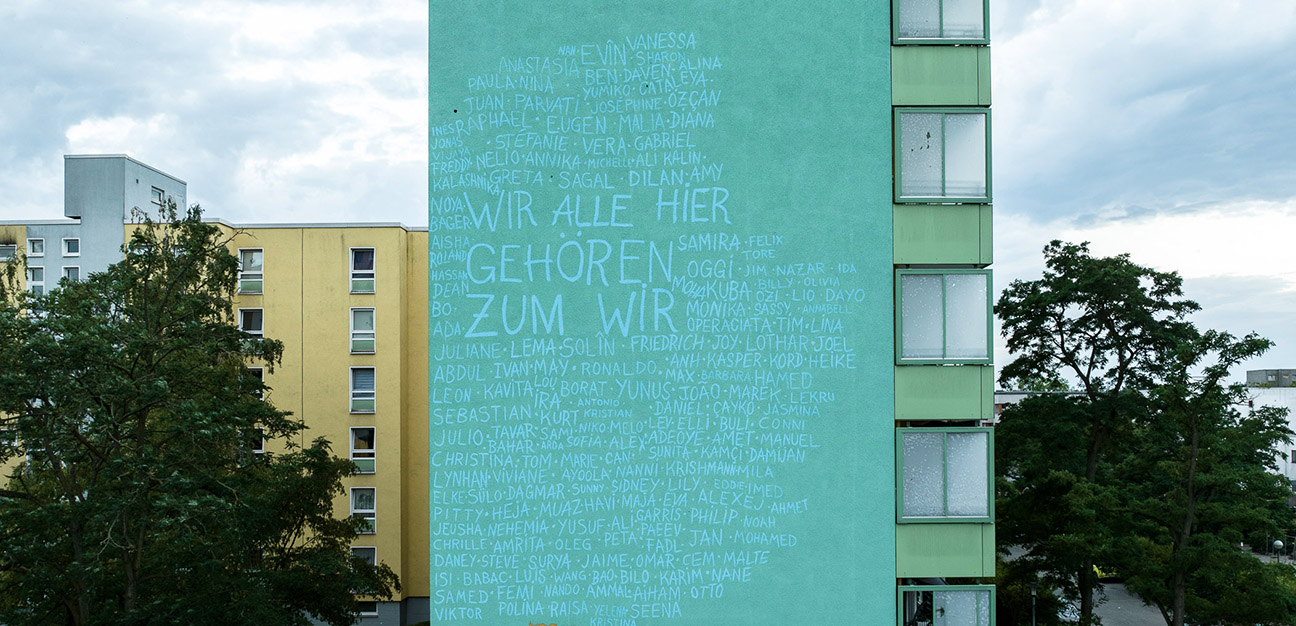 NAH · EVÎN VANESSA
ANASTASIA SHARON
BEN · DAVEN · ALINA
PAULA · NINA YUMIKO · CATA · EVA ·
JUAN · PARVATI · JOSEPHINE · ÖZÇAN
INES RAPHAEL · EUGEN · MALIA · DIANA
JONAS · STEFANIE · VERA · GABRIEL
FREDDY NELIO · ANNIKA · MICHELLE · ALI KALIN ·
KALASHNIKA GRETA · SAGAL · DILAN · AMY
NOYA WIR ALLE HIER
BAGER
AISHA GEHÖREN SAMIRA · FELIK
ROLAND TORE
HASSAN OGGI · JIM · NAZAR · IDA
DEAN KUBA · BILLY · OLIVIA
BO · ZUM WIR OZI · LIO · DAYO
MONIKA · SASSY · ANNIBELL
ADA OPERACIATA · TIM · LINA
JULIANE · LEMA · SOLÎN · FRIEDRICH · JOY · LOTHAR · JOEL
KASPER · KORD · HEIKE
ABDUL · IVAN · MAY · RONALDO · MAX · BARBARA · HAMED
LEON · KAVITA LOU BORAT · YUNUS · JOÃO · MAREK · LEKRU
IRA · ANTONIO
SEBASTIAN · KURT · KRISTIAN DANIEL · CANKO · JASMINA
JULIO · TAVAR · SAMI · NIKO · MELO · LEV · ELLI · BULI · CONNI
BAHAR · SOFIA · ALEX · ADEOYE · AMET · MANUEL
CHRISTINA · TOM · MARIE · CAN · SUNITA · KAMÇI · DAMIJAN
LYNHAN · VIVIANE · AYOOLA · NANNI · KRISHMANN · MILA
ELKE · SULO · DAGMAR · SUNNY · SIDNEY · LILY · EDDIE · IMED
PITTY · HEJA · MUAZ · HAVI · MAJA · EVA · ALEXEJ · AHMET
JEUSHA · NEHEMIA · YUSUF · ALI · GARRIS · PHILIP · NOAH
CHRILLE · AMRITA · OLEG · PETA · PAEEV · FADL · JAN · MOHAMED
DANEY · STEVE · SURYA · JAIME · OMAR · CEM · MALTE
ISI · BABAC · LUIS · WANG · BAO · BILO · KARIM · NANE
SAMED · FEMI · NANDO · AMMAL · AIHAM · OTTO
VIKTOR POLINA · RAISA · YELENA · SEENA
KRISTINA